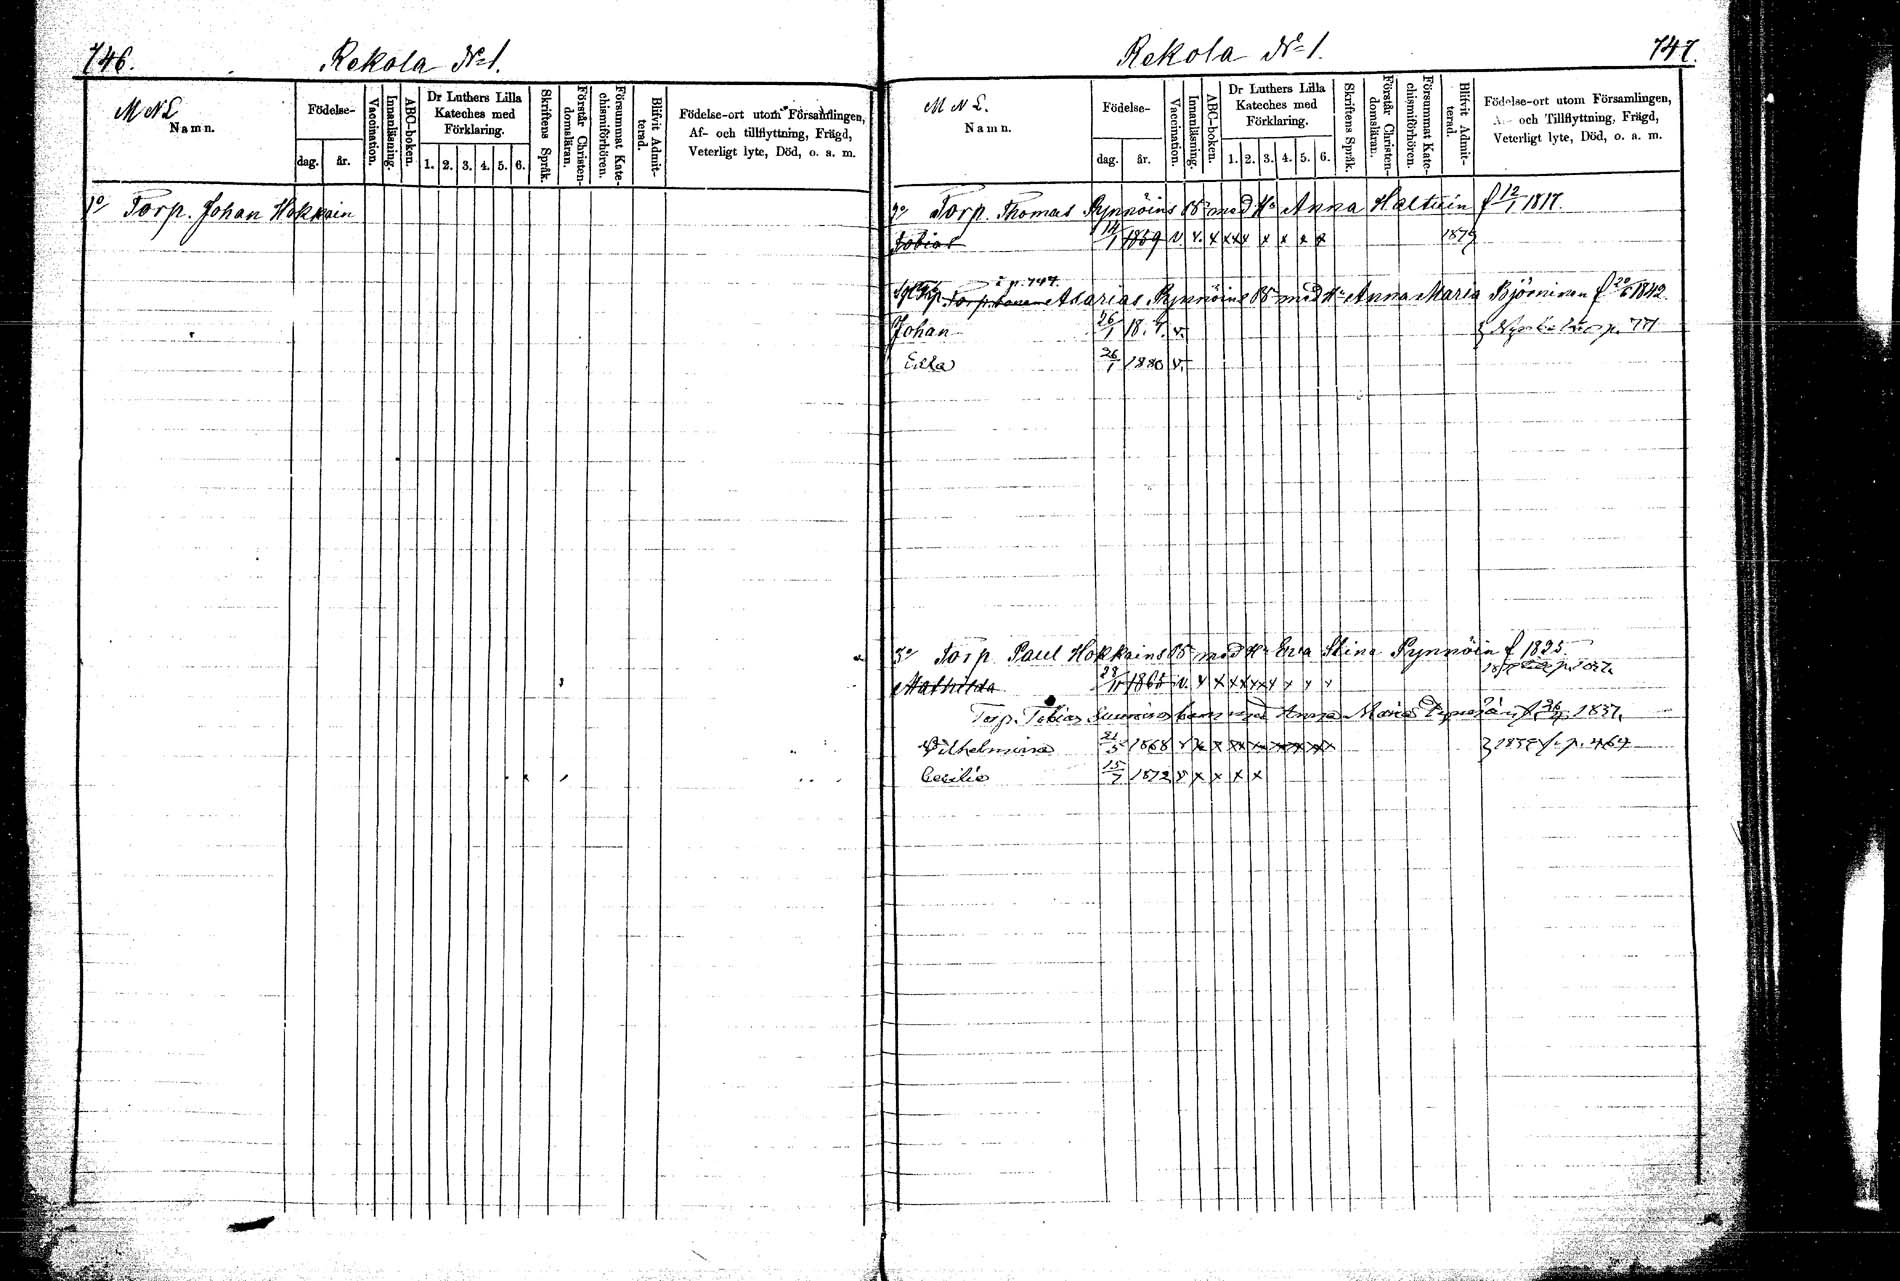 746.
Rekola No 1.
M N L
Namn.
Födelse-
dag.
år.
Vaccination.
Innanläsning.
ABC-boken.
Dr Luthers Lilla
Kateches med
Förklaring.
1. 2. 3. 4. 5. 6.
Skriftens Språk.
Förstår Christen-
domsläran.
Försummat Kate-
chismiförhören.
Blifvit Admit-
terad.
Födelse-ort utom Församlingen,
Af- och tillflyttning, Frägd,
Veterligt lyte, Död, o. a. m.
1o Torp. Johan Hokkain
Rekola No 1.
747.
M N L.
Namn.
Födelse-
dag.
år.
Vaccination.
Innanläsning.
ABC-boken.
Dr Luthers Lilla
Kateches med
Förklaring.
1. 2. 3. 4. 5. 6.
Skriftens Språk.
Förstår Christen-
domsläran.
Försummat Kate-
chismiförhören.
Blifvit Admit-
terad.
Födelse-ort utom Församlingen,
Af- och Tillflyttning, Frägd,
Veterligt lyte, Död, o. a. m.
Torp. Thomas Pynnöins med Hu Anna f 12/1 1817.
Tobias 14/1 1859 v v. x x x x x x x x 1879
i p. 747.
Asarias Pynnöins med Hu Anna Maria Björninen f 20/6 1842
Johan 26/1 18 v.
26/1 1880 v.
3o Torp. Paul Hokkains med Hu Eva Stina Pynnöin f 1825
Mathilda 28/11 1865 v. v x x x x x x x
Torp. Tobias barn med Anna Maria 1837.
Vilhelmina 21/5 1868 v x x x x x x x x p. 464
Cecilia 15/7 1872 v x x x x